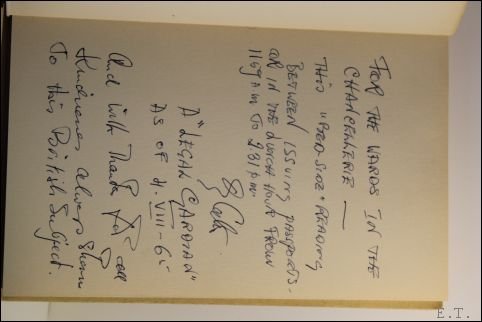 FOR THE WARDS IN THE
CHANCELLERIE —
THIS "BED-SIDE" READING
BETWEEN ISSUING PASSPORTS -
OR IN THE LUNCH HOUR FROM
11.59 A.M. TO 2.31 P.M.
A "LEGAL GARDIAN"
AS OF 4. VIII - 61
And with Thanks for all
Kindnesses always shown
To this British Subject.
E.T.